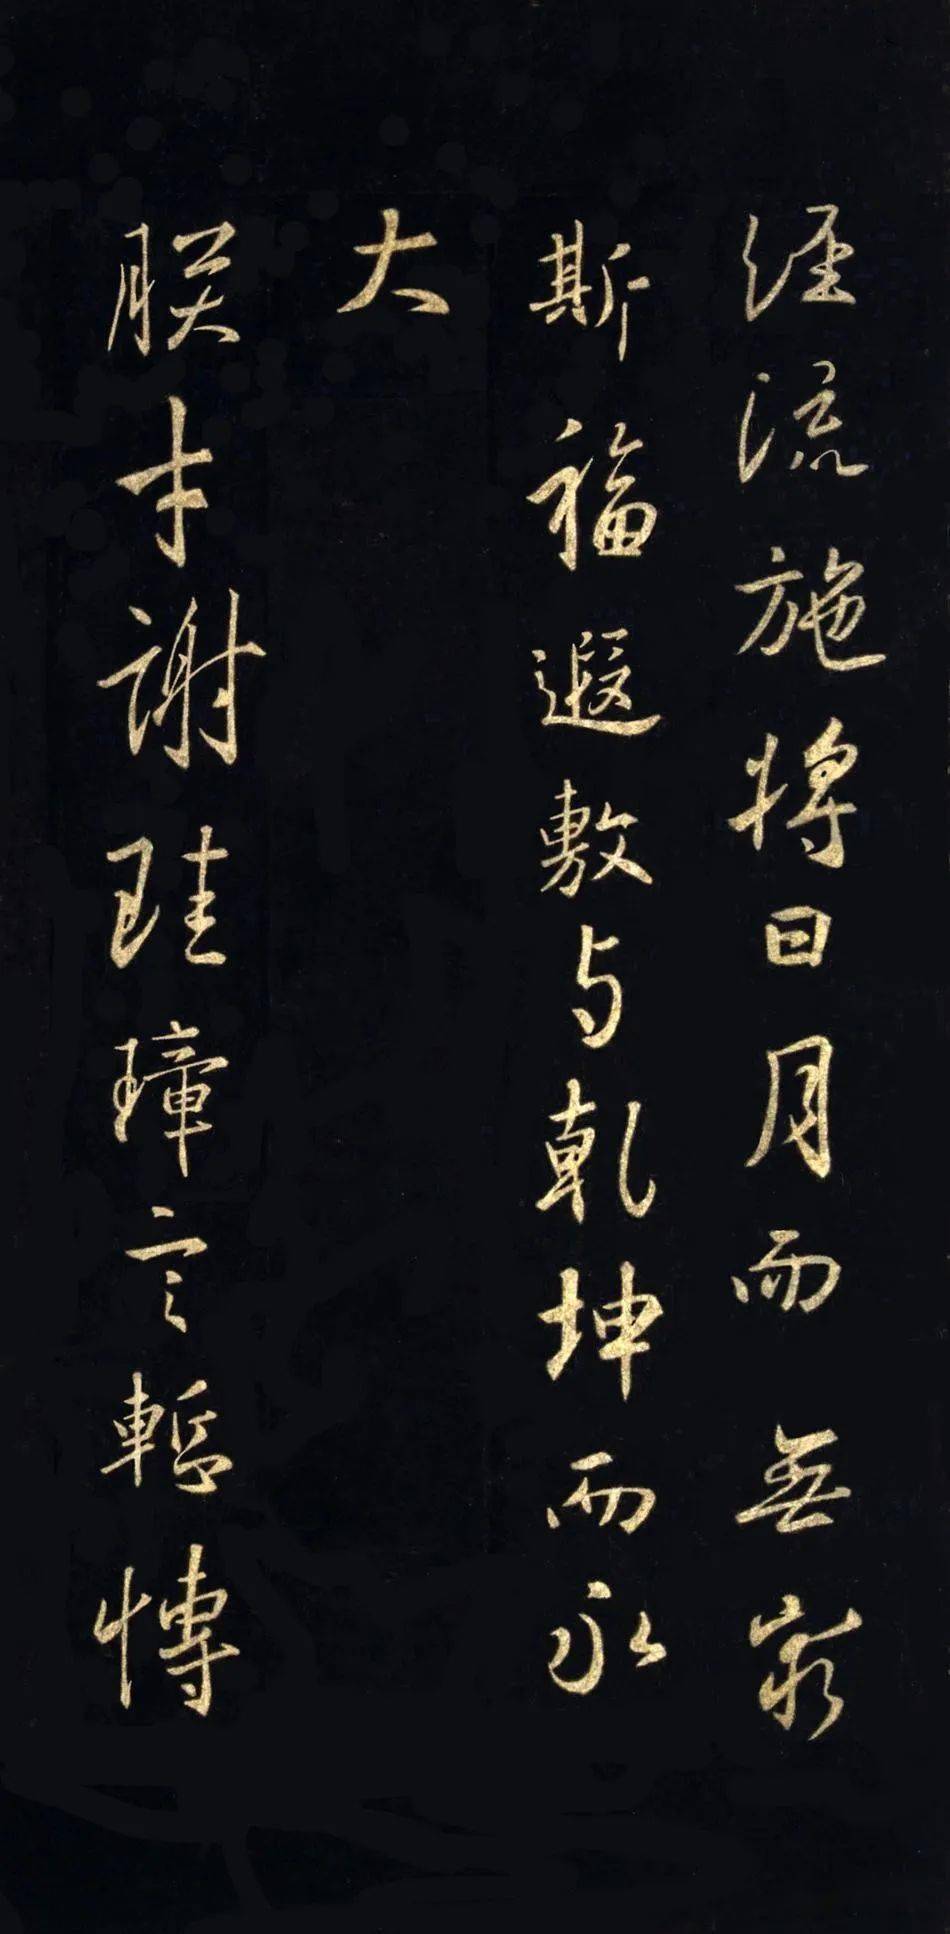 经流施将日月而無窮
斯福遐敷与乾坤而永
大
朕才謝珪璋言輒博